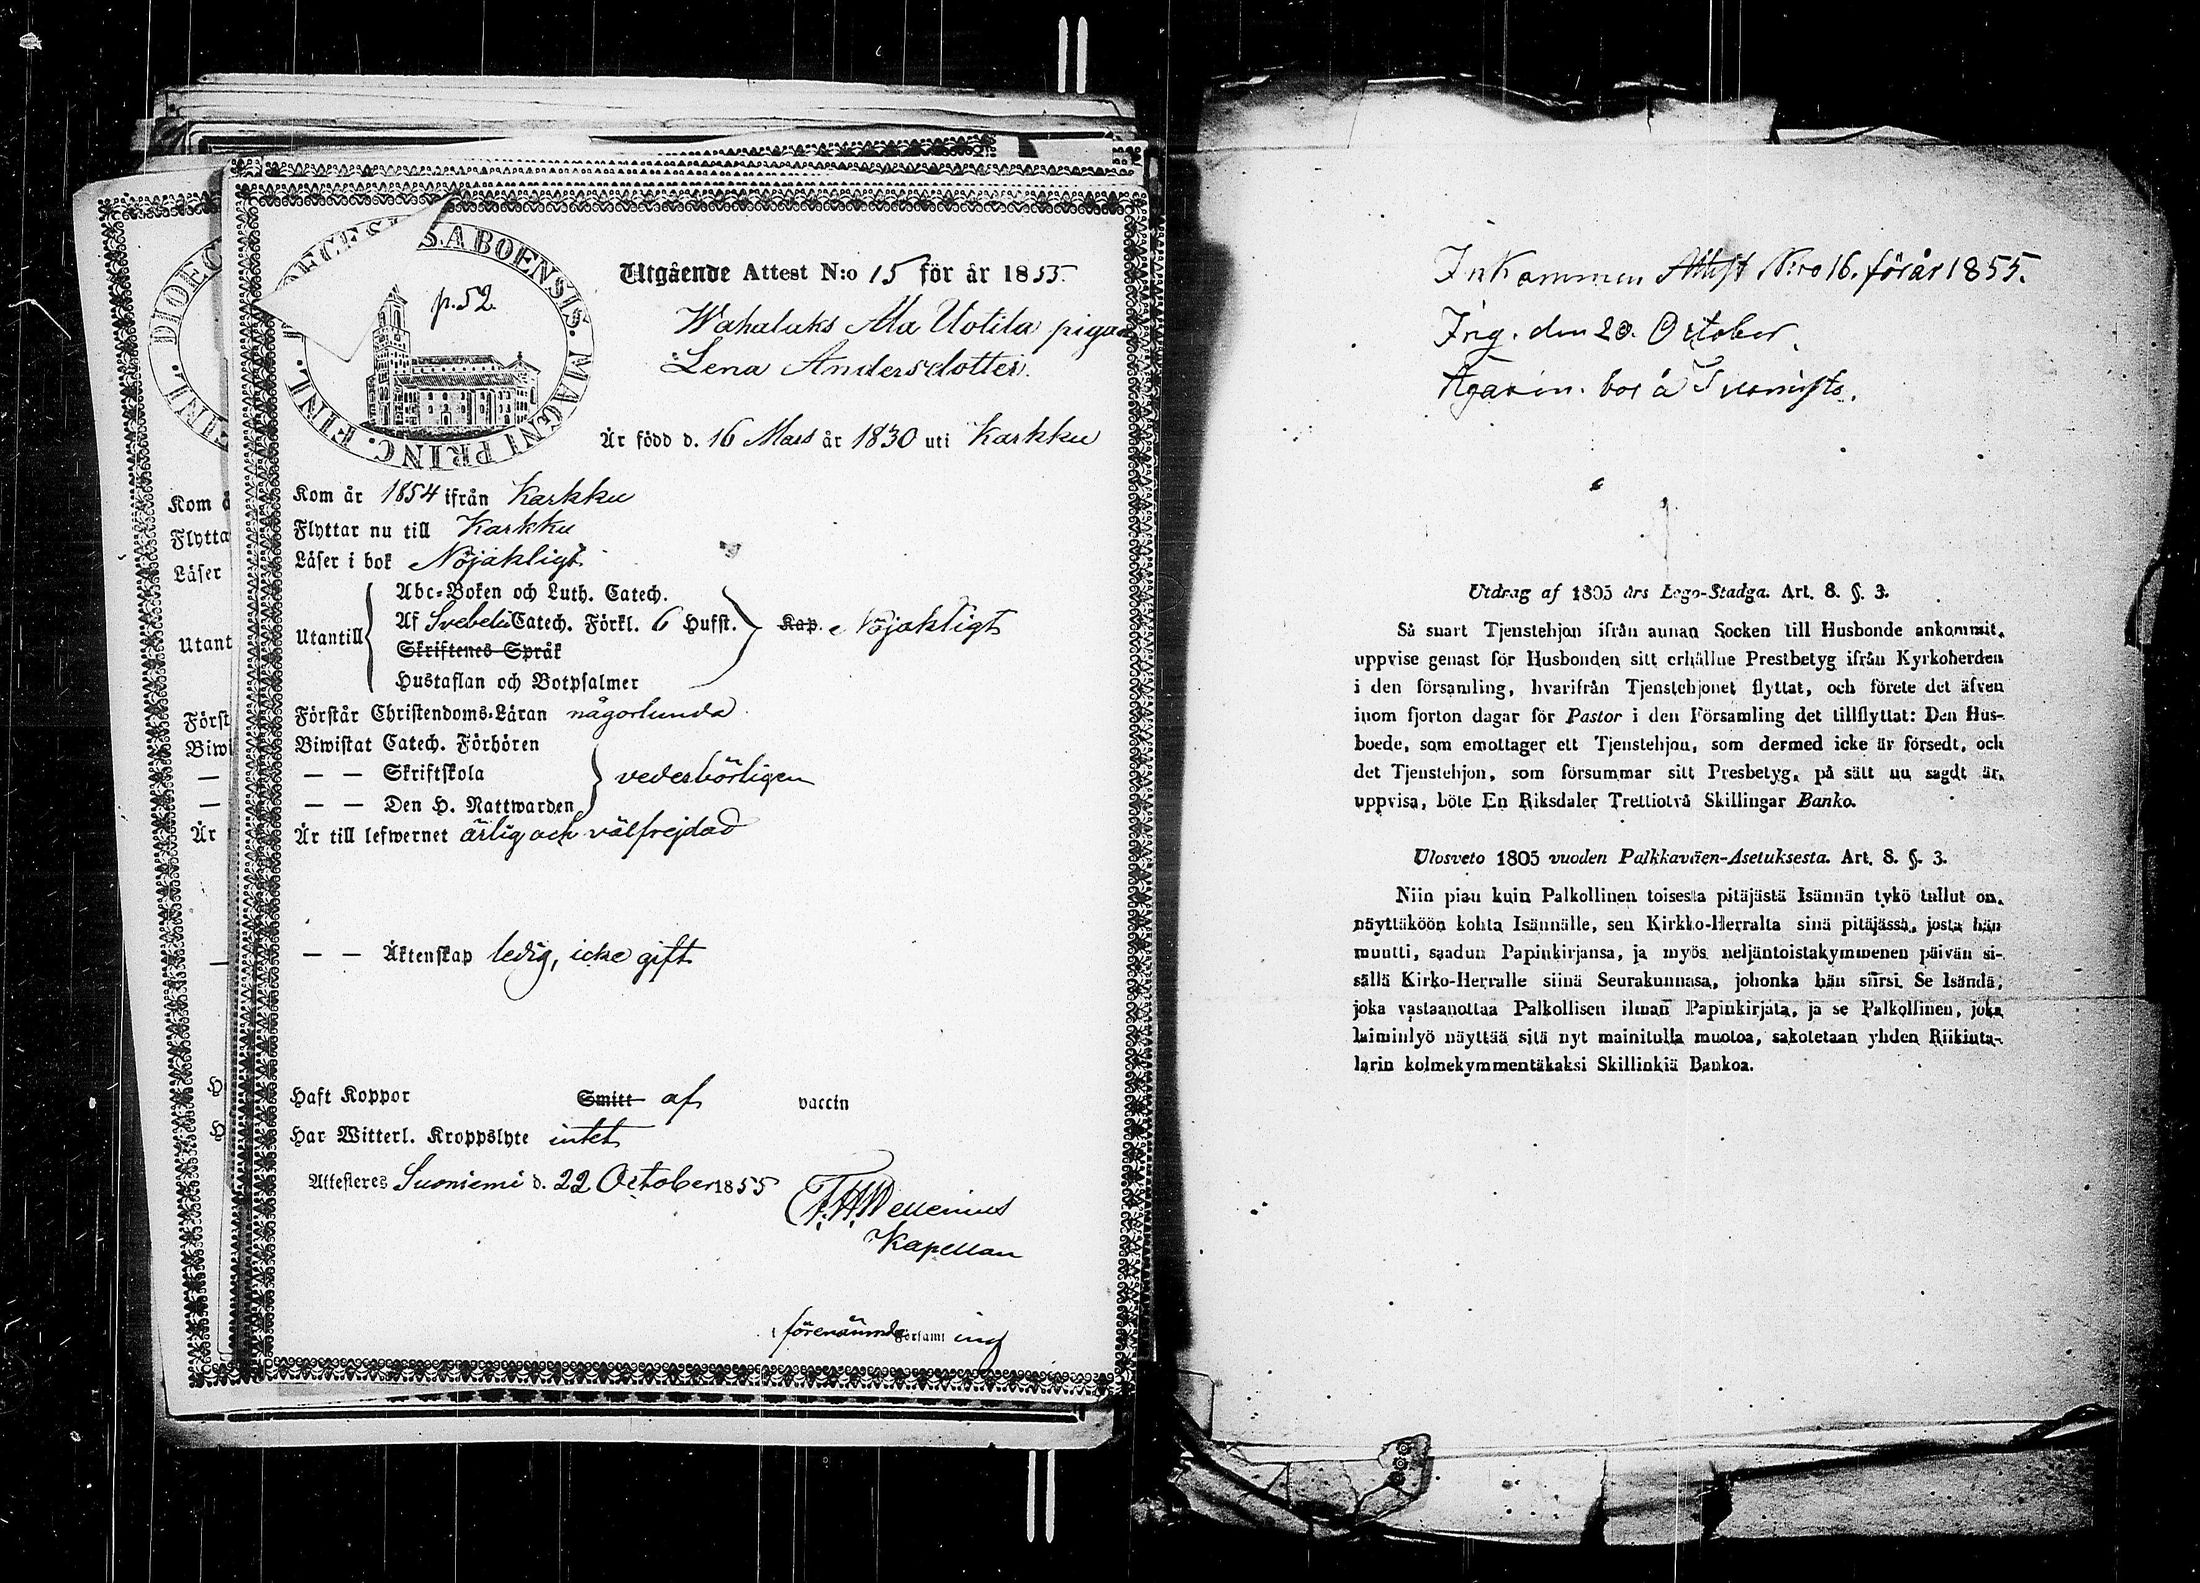 DIOECESIS ABOENSIS. MAGNI PRINC. FINL.
p. 52.
Utgående Attest N:o 15 för år 1855.
Wahalaks Ala Uotila pigan
Lena Andersdotter.
Är född d. 16 Mars år 1830 uti Karkku
Kom år 1854 ifrån Karkku
Flyttar nu till Karkku
Läser i bok Nöjaktligt
Utantill
Abc-Boken och Luth. Catech.
Af Svebelii Catech. Förkl. 6 Hufst. Kap. Nöjaktligt
Skriftenes Språk
Hustaflan och Botpsalmer
Förstår Christendoms-Läran någorlunda
Biwistat Catech. Förhören
— — Skriftskola vederbörligen
— — Den H. Nattwarden
Är till lefwernet ärlig och välfrejdad
— — Äktenskap ledig, icke gift
Haft Koppor Smitt af vaccin
Har Witterl. Kroppslyte intet
Attesteres Suoniemi d. 22 October 1855
Kapellan
i förenämnda Församl ing
DIOEC
FINL.
Kom å
Flytta
Läser
Utant
Först
Biwi
—
—
Är t
—
H
H
Inkommen Attest N:ro 16. för år 1855.
Ing. den 20. October.
Utdrag af 1805 års Lego-Stadga. Art. 8. §. 3.
Så snart Tjenstehjon ifrån annan Socken till Husbonde ankommit,
uppvise genast för Husbonden sitt erhållne Prestbetyg ifrån Kyrkoherden
i den församling, hvarifrån Tjenstehjonet flyttat, och förete det äfven
inom fjorton dagar för Pastor i den Församling det tillflyttat: Den Hus-
boede, som emottager ett Tjenstehjon, som dermed icke är försedt, och
det Tjenstehjon, som försummar sitt Presbetyg, på sätt nu sagdt är,
uppvisa, böte En Riksdaler Trettiotvå Skillingar Banko.
Ulosveto 1805 vuoden Palkkaväen-Asetuksesta. Art. 8. §. 3.
Niin pian kuin Palkollinen toisesta pitäjästä Isännän tykö tullut on,
näyttäköön kohta Isännälle, sen Kirkko-Herralta sinä pitäjässä, josta hän
muutti, saadun Papinkirjansa, ja myös neljäntoistakymmenen päivän si-
sällä Kirko-Herralle siinä Seurakunnasa, johonka hän siirsi. Se Isändä,
joka vastaanottaa Palkollisen ilman Papinkirjata, ja se Palkollinen, joka
laiminlyö näyttää sitä nyt mainitulla muotoa, sakotetaan yhden Riikinta-
larin kolmekymmentäkaksi Skillinkiä Bankoa.